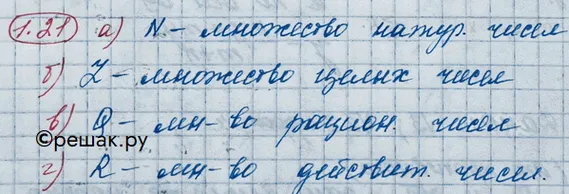 1.21 а) N - множество натур. чисел
б) Z - множество целых чисел
в) Q - мн-во рацион. чисел
©решак.ру
г) R - мн-во действит. чисел.